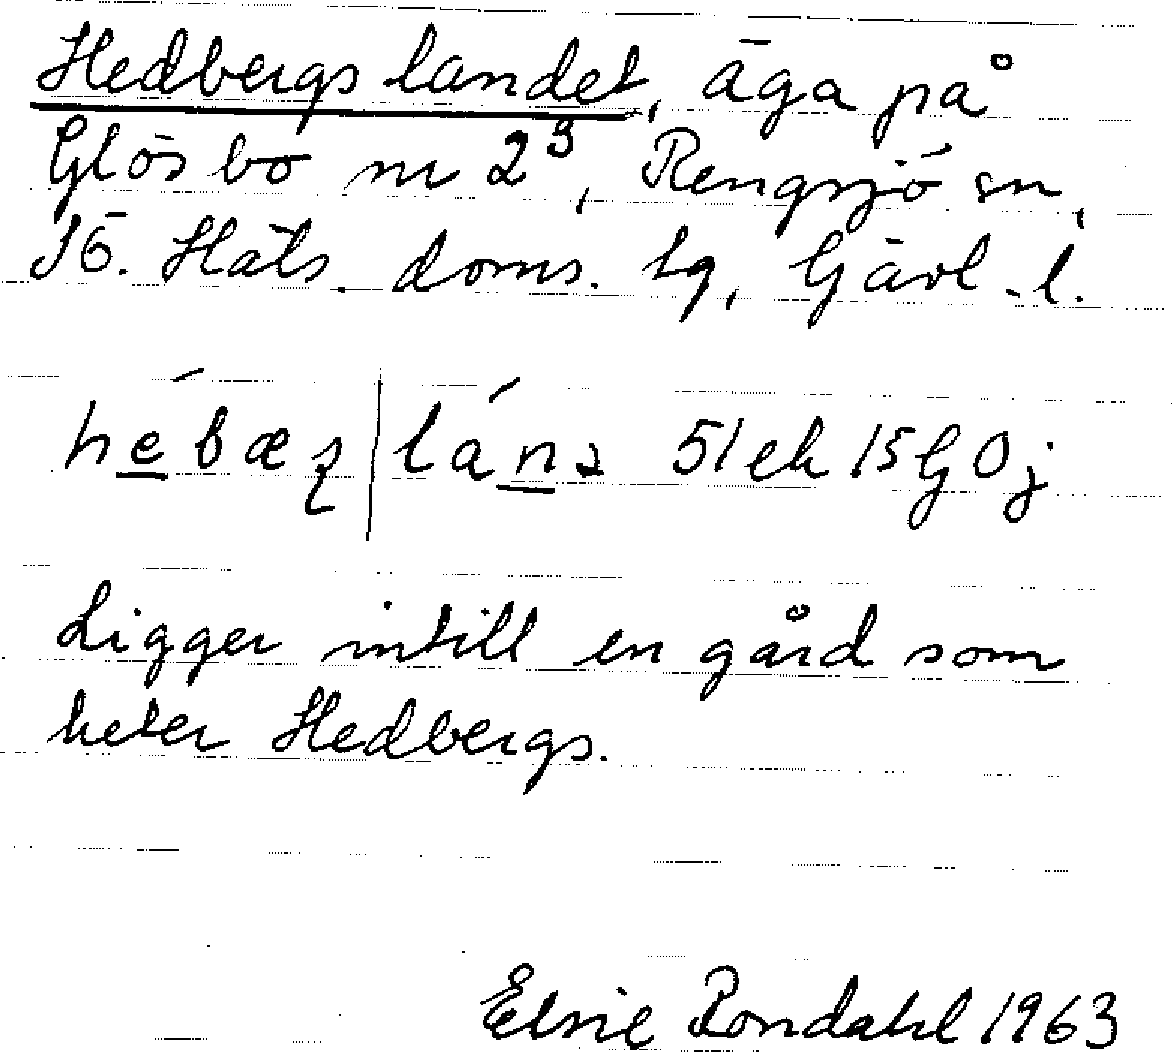 Hedbergslandet, äga på
Glösbo nr 2³, Rengsjö sn,
Sö. Häls. doms. tg, Gävl. l.
hébæȥ|lánə 51 ek 15 G O j
Ligger intill en gård som
heter Hedbergs.
Elsie Rondahl 1963